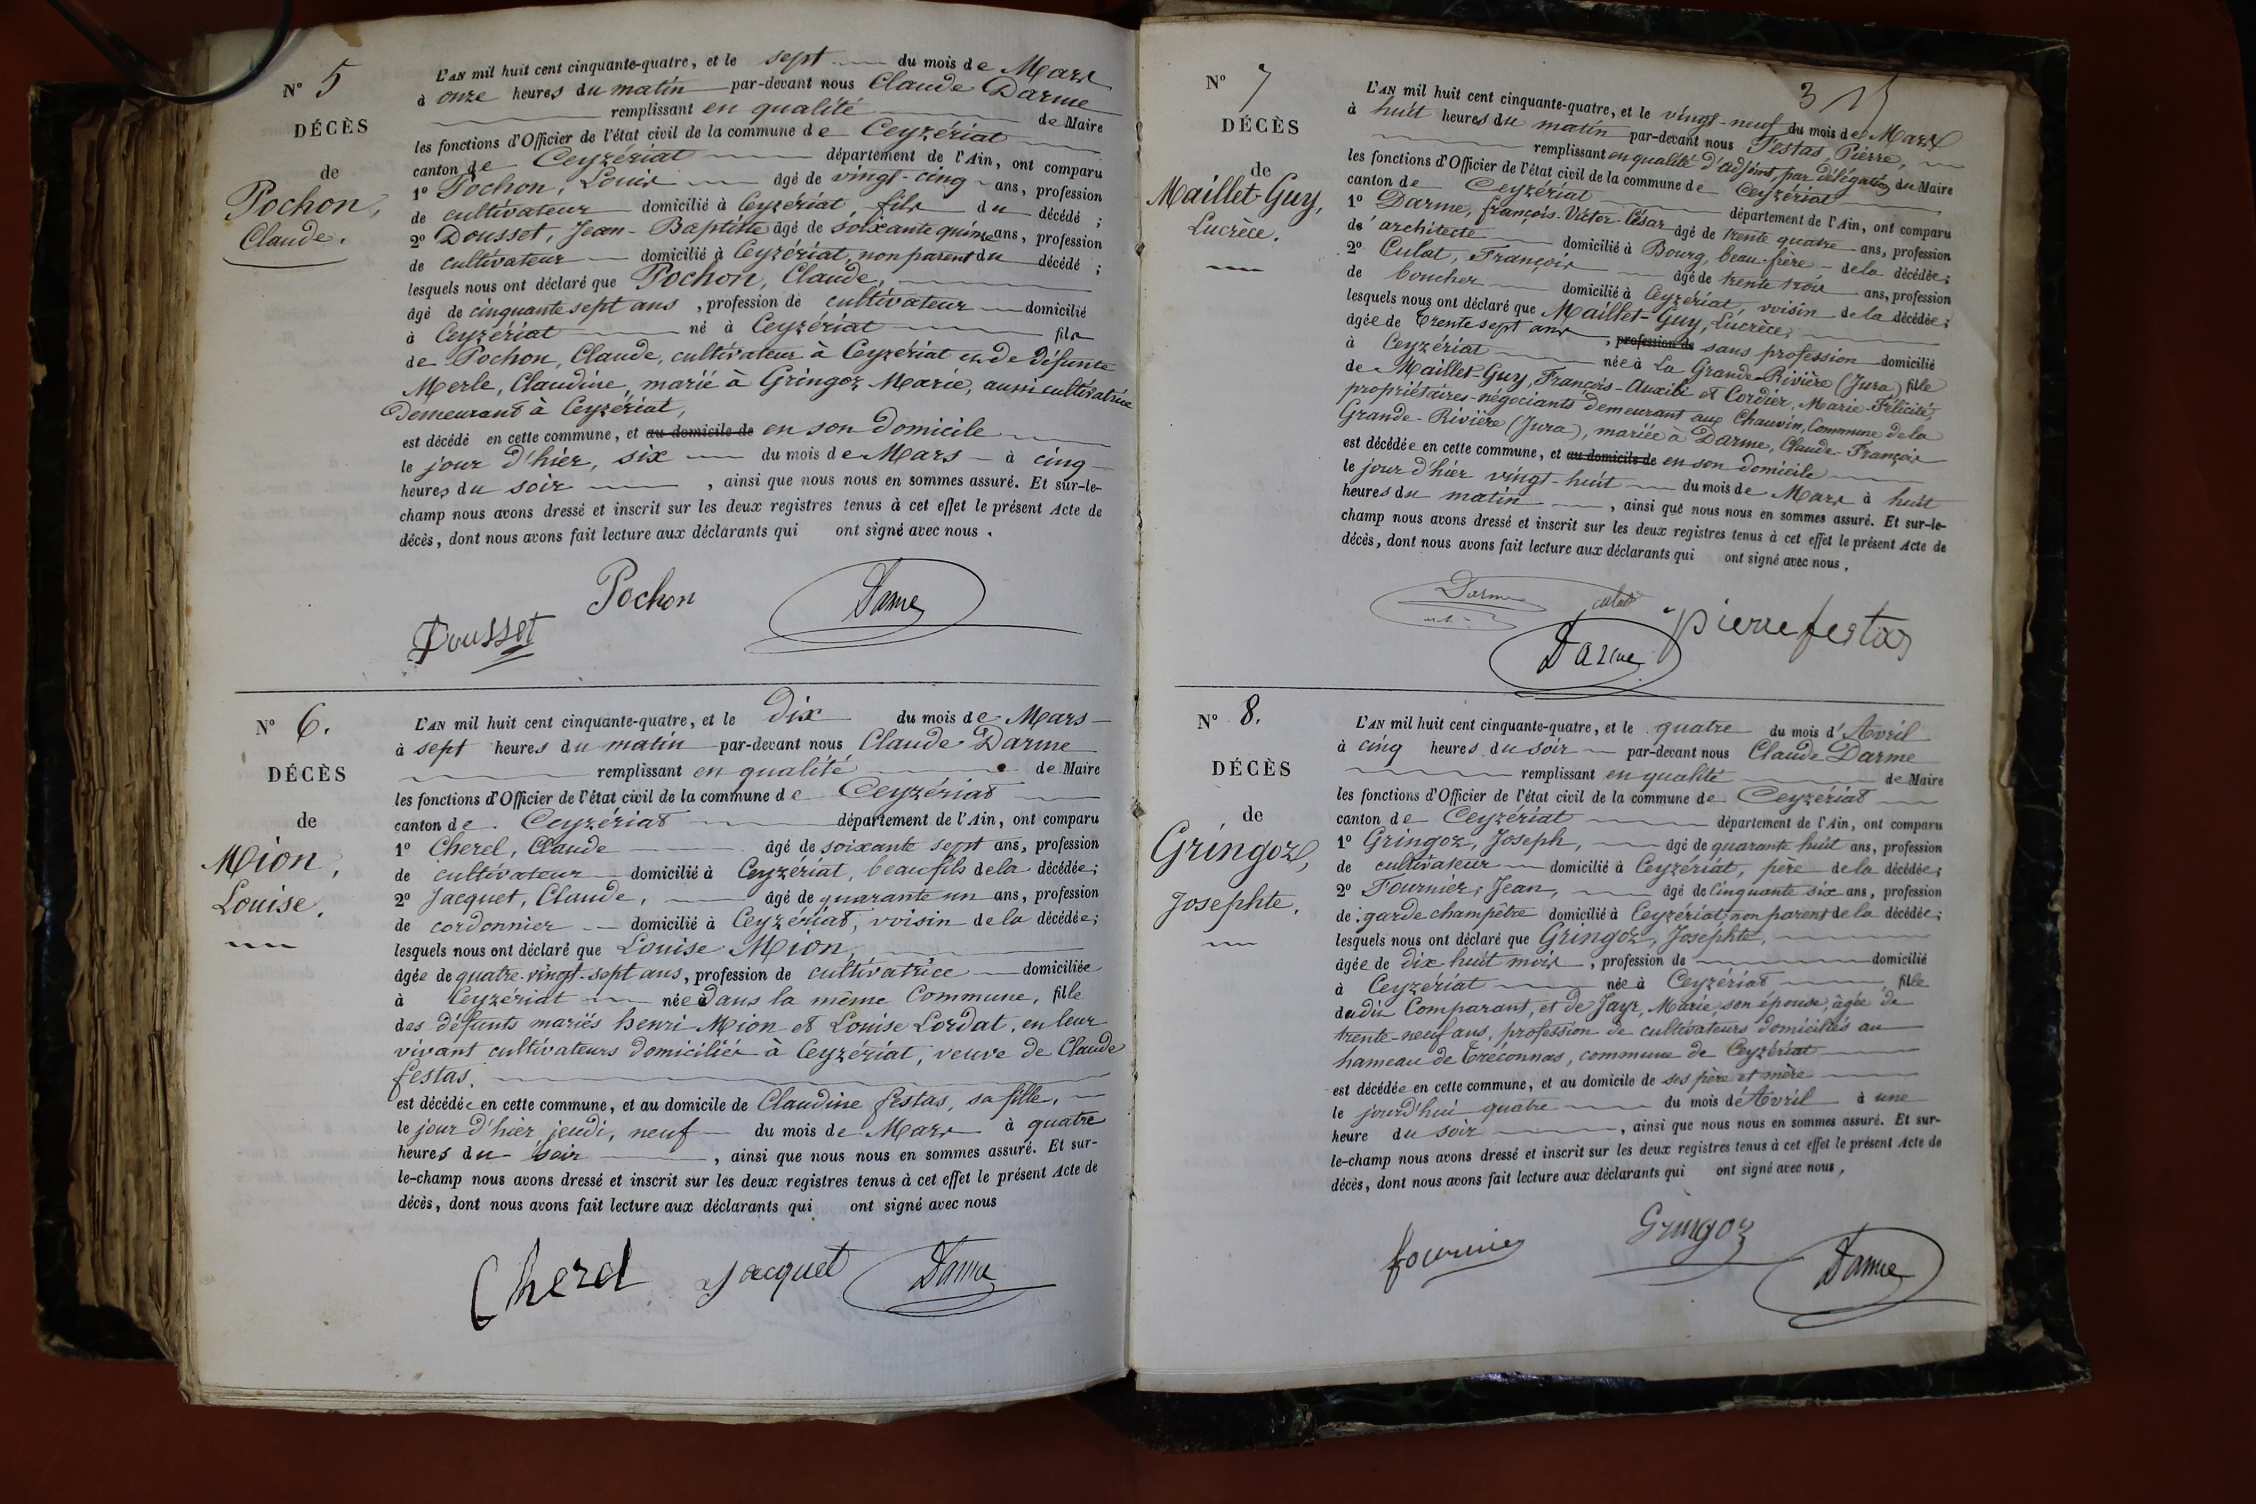 N° 5
DÉCÈS
de
Pochon,
Claude.
L'AN mil huit cent cinquante-quatre, et le sept du mois de Mars
à onze heures du matin par-devant nous Claude Darme
remplissant en qualité de Maire
les fonctions d'Officier de l'état civil de la commune de Ceyzériat
canton de Ceyzériat département de l'Ain, ont comparu
1° Pochon, Louis âgé de vingt-cinq ans, profession
de cultivateur domicilié à Ceyzériat fils du décédé ;
2° Dousset, Jean-Baptiste âgé de soixante quinze ans, profession
de cultivateur domicilié à Ceyzériat, non parent du décédé ;
lesquels nous ont déclaré que Pochon, Claude,
âgé de cinquante sept ans, profession de cultivateur domicilié
à Ceyzériat né à Ceyzériat fils
de Pochon, Claude, cultivateur à Ceyzériat et de défunte
Merle, Claudine, marié à Gringoz Marie, aussi cultivatrice
demeurant à Ceyzériat,
est décédé en cette commune, et au domicile de en son domicile
le jour d'hier, six du mois de Mars à cinq
heures du soir, ainsi que nous nous en sommes assuré. Et sur-le-
champ nous avons dressé et inscrit sur les deux registres tenus à cet effet le présent Acte de
décès, dont nous avons fait lecture aux déclarants qui ont signé avec nous.
Pochon
Darme
Dousset
N° 6.
DÉCÈS
de
Mion,
Louise.
L'AN mil huit cent cinquante-quatre, et le dix du mois de Mars
à sept heures du matin par-devant nous Claude Darme
remplissant en qualité de Maire
les fonctions d'Officier de l'état civil de la commune de Ceyzériat
canton de Ceyzériat département de l'Ain, ont comparu
1° Cherel, Claude âgé de soixante sept ans, profession
de cultivateur domicilié à Ceyzériat, beau fils de la décédée ;
2° Jacquet, Claude, âgé de quarante un ans, profession
de cordonnier domicilié à Ceyzériat, voisin de la décédée ;
lesquels nous ont déclaré que Louise Mion,
âgée de quatre-vingt-sept ans, profession de cultivatrice domiciliée
à Ceyzériat née à dans la même Commune, fille
des défunts mariés henri Mion et Louise Lordat, en leur
vivant cultivateurs domiciliés à Ceyzériat, veuve de Claude
festas.
est décédée en cette commune, et au domicile de Claudine festas, sa fille,
le jour d'hier, jeudi, neuf du mois de Mars à quatre
heures du soir, ainsi que nous nous en sommes assuré. Et sur-
le-champ nous avons dressé et inscrit sur les deux registres tenus à cet effet le présent Acte de
décès, dont nous avons fait lecture aux déclarants qui ont signé avec nous
Cherel Jacquet Darme
3
N° 7
DÉCÈS
de
Maillet-Guy,
Lucrèce.
L'AN mil huit cent cinquante-quatre, et le vingt-neuf du mois de Mars
à huit heures du matin par-devant nous Festas, Pierre,
remplissant en qualité d'adjoint, par délégation du Maire
les fonctions d'Officier de l'état civil de la commune de Ceyzériat
canton de Ceyzériat département de l'Ain, ont comparu
1° Darme, françois-Victor-César âgé de trente quatre ans, profession
de architecte domicilié à Bourg, beau-frère de la décédée ;
2° Culat, François âgé de trente trois ans, profession
de boucher domicilié à Ceyzériat, voisin de la décédée ;
lesquels nous ont déclaré que Maillet-Guy, Lucrèce,
âgée de trente sept ans, profession de sans profession domicilié
à Ceyzériat née à La Grande-Rivière (Jura) fille
de Maillet-Guy, François-Auxile et Cordier, Marie-Félicité,
propriétaires-négociants demeurant aux Chauvin, Commune de la
Grande-Rivière (Jura), mariée à Darme, Claude-François
est décédée en cette commune, et au domicile de en son domicile
le jour d'hier vingt-huit du mois de Mars à huit
heures du matin, ainsi que nous nous en sommes assuré. Et sur-le-
champ nous avons dressé et inscrit sur les deux registres tenus à cet effet le présent Acte de
décès, dont nous avons fait lecture aux déclarants qui ont signé avec nous.
Darme culat pierre festas
Darme
N° 8.
DÉCÈS
de
Gringoz,
Josephte.
L'AN mil huit cent cinquante-quatre, et le quatre du mois d'Avril
à cinq heures du soir par-devant nous Claude Darme
remplissant en qualité de Maire
les fonctions d'Officier de l'état civil de la commune de Ceyzériat
canton de Ceyzériat département de l'Ain, ont comparu
1° Gringoz, Joseph, âgé de quarante huit ans, profession
de cultivateur domicilié à Ceyzériat, père de la décédée ;
2° Fournier, Jean, âgé de cinquante six ans, profession
de garde champêtre domicilié à Ceyzériat, non parent de la décédée ;
lesquels nous ont déclaré que Gringoz, Josephte,
âgée de dix huit mois, profession de domicilié
à Ceyzériat née à Ceyzériat fille
dudit Comparant, et de Jayr, Marie, son épouse, âgée de
trente-neuf ans, profession de cultivateurs domiciliés au
hameau de Tréconnas, commune de Ceyzériat
est décédée en cette commune, et au domicile de ses père et mère
le jourd'hui quatre du mois d'Avril à une
heure du soir, ainsi que nous nous en sommes assuré. Et sur-
le-champ nous avons dressé et inscrit sur les deux registres tenus à cet effet le présent Acte de
décès, dont nous avons fait lecture aux déclarants qui ont signé avec nous,
fournier Gringoz Darme